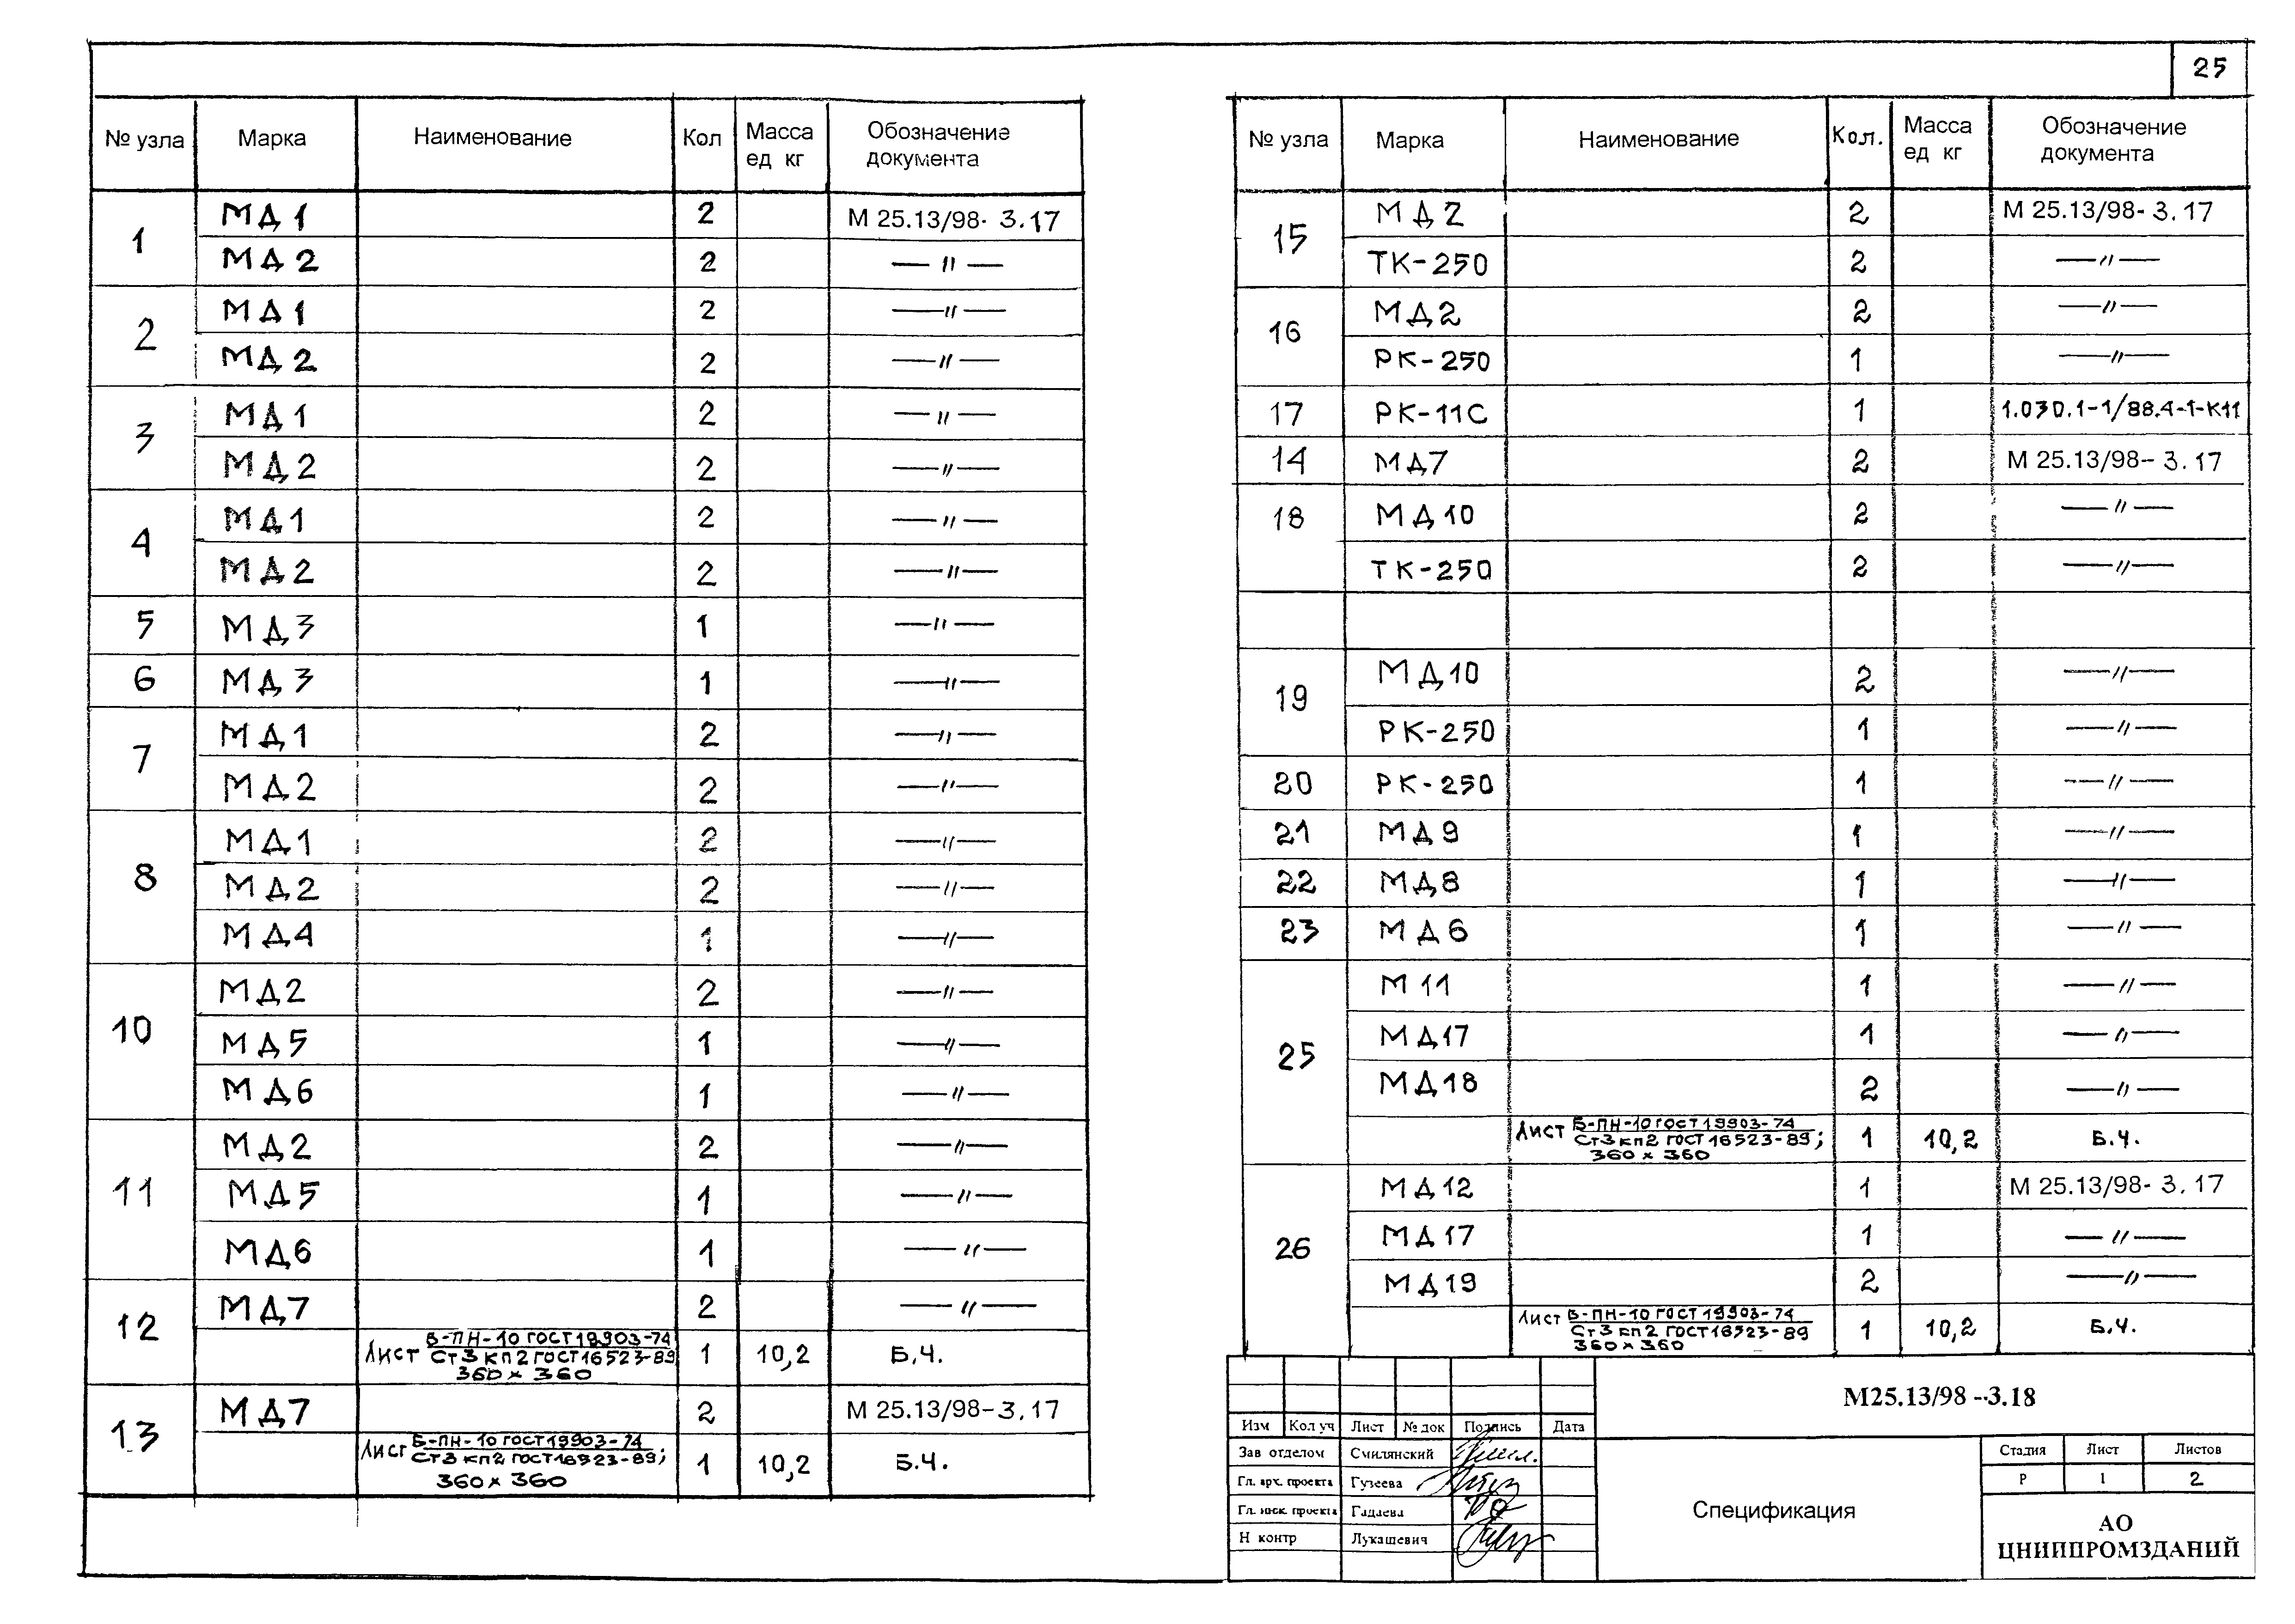 25
№ узла Марка Наименование Кол Масса ед кг Обозначение документа
1 МД1 2 М 25.13/98- 3.17
МД2 2 —〃—
2 МД1 2 —〃—
МД2 2 —〃—
3 МД1 2 —〃—
МД2 2 —〃—
4 МД1 2 —〃—
МД2 2 —〃—
5 МД3 1 —〃—
6 МД3 1 —〃—
7 МД1 2 —〃—
МД2 2 —〃—
8 МД1 2 —〃—
МД2 2 —〃—
МД4 1 —〃—
10 МД2 2 —〃—
МД5 1 —〃—
МД6 1 —〃—
11 МД2 2 —〃—
МД5 1 —〃—
МД6 1 —〃—
12 МД7 2 —〃—
Б-ПН-10 ГОСТ 19903-74
Лист Ст3кп2 ГОСТ 16523-89 1 10,2 Б.Ч.
360 х 360
13 МД7 2 М 25.13/98-3.17
Б-ПН-10 ГОСТ 19903-74
Лист Ст3кп2 ГОСТ 16523-89; 1 10,2 Б.Ч.
360 х 360
№ узла Марка Наименование Кол. Масса ед кг Обозначение документа
15 МД2 2 М 25.13/98- 3.17
ТК-250 2 —〃—
16 МД2 2 —〃—
РК-250 1 —〃—
17 РК-11С 1 1.030.1-1/88.4-1-К11
14 МД7 2 М 25.13/98- 3.17
18 МД10 2 —〃—
ТК-250 2 —〃—
19 МД10 2 —〃—
РК-250 1 —〃—
20 РК-250 1 —〃—
21 МД9 1 —〃—
22 МД8 1 —〃—
23 МД6 1 —〃—
25 М11 1 —〃—
МД17 1 —〃—
МД18 2 —〃—
Б-ПН-10 ГОСТ 19903-74
Лист Ст3кп2 ГОСТ 16523-89; 1 10,2 Б.Ч.
360 х 360
26 МД12 1 М 25.13/98- 3.17
МД17 1 —〃—
МД19 2 —〃—
Б-ПН-10 ГОСТ 19903-74
Лист Ст3кп2 ГОСТ 16523-89 1 10,2 Б.Ч.
360 х 360
М25.13/98 -3.18
Изм Кол уч Лист № док Подпись Дата
Зав отделом Смилянский
Гл. арх. проекта Гузеева
Гл. инж. проекта Гадаева
Н контр Лукашевич
Спецификация
Стадия Лист Листов
Р 1 2
АО
ЦНИИПРОМЗДАНИЙ